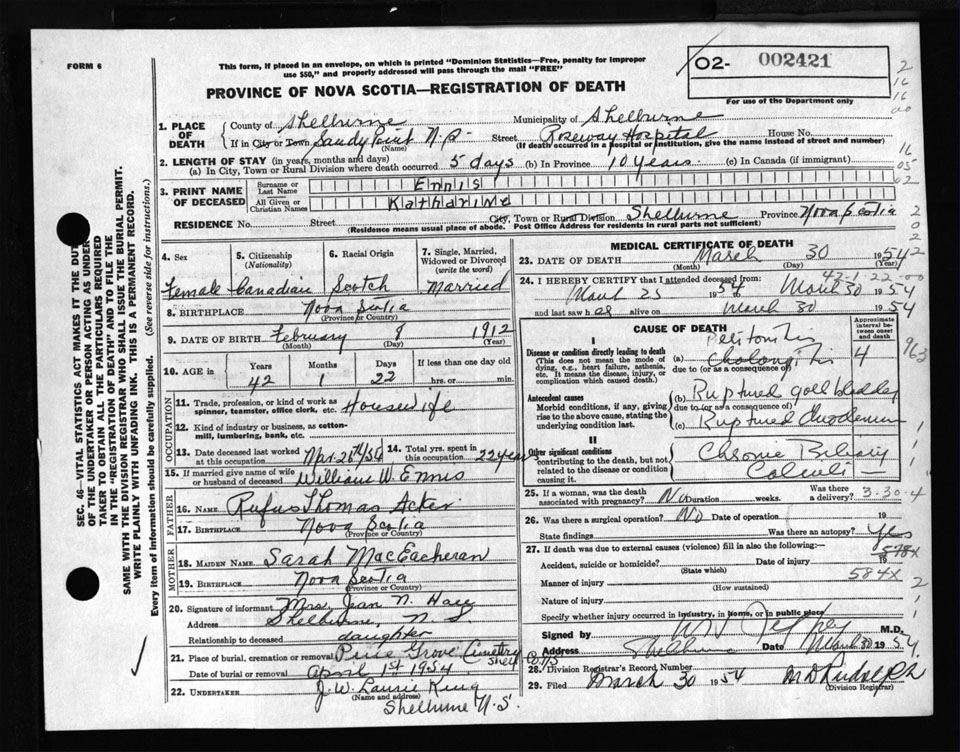 FORM 6
This form, if placed in an envelope, on which is printed "Dominion Statistics—Free, penalty for improper
use $50," and properly addressed will pass through the mail "FREE"
PROVINCE OF NOVA SCOTIA—REGISTRATION OF DEATH
02- 002421
For use of the Department only
1. PLACE OF DEATH
County of Shelburne Municipality of Shelburne
If in City or Town Sandy Point N.S. Street Roseway Hospital House No.
(Name) (If death occurred in a hospital or institution, give the name instead of street and number)
2. LENGTH OF STAY (in years, months and days)
(a) In City, Town or Rural Division where death occurred 5 days (b) In Province 10 years (c) In Canada (if immigrant)
3. PRINT NAME OF DECEASED
Surname or Last Name Ennis
All Given or Christian Names Katharine
RESIDENCE No. Street City, Town or Rural Division Shelburne Province Nova Scotia
(Residence means usual place of abode. Post Office Address for residents in rural parts not sufficient)
4. Sex
Female
5. Citizenship
(Nationality)
Canadian
6. Racial Origin
Scotch
7. Single, Married, Widowed or Divorced
(write the word)
Married
8. BIRTHPLACE Nova Scotia
(Province or Country)
9. DATE OF BIRTH February 8 1912
(Month) (Day) (Year)
10. AGE in Years Months Days If less than one day old
42 1 22 hrs. or min.
OCCUPATION
11. Trade, profession or kind of work as
spinner, teamster, office clerk, etc. Housewife
12. Kind of industry or business, as cotton-
mill, lumbering, bank, etc.
13. Date deceased last worked at this occupation Mar. 25th/54
14. Total yrs. spent in this occupation 22 years
15. If married give name of wife
or husband of deceased William W. Ennis
FATHER
16. NAME Rufus Thomas Acker
17. BIRTHPLACE Nova Scotia
(Province or Country)
MOTHER
18. MAIDEN NAME Sarah MacEacheran
19. BIRTHPLACE Nova Scotia
(Province or Country)
20. Signature of informant Mrs. Jean N.
Address Shelburne, N.S.
Relationship to deceased daughter
21. Place of burial, cremation or removal Pine Grove Cemetery
Date of burial or removal April 1st 1954
22. UNDERTAKER J.W. Laurie King
(Name and address)
Shelburne N.S.
MEDICAL CERTIFICATE OF DEATH
23. DATE OF DEATH March 30 1954
(Month) (Day) (Year)
42-1-22-00
24. I HEREBY CERTIFY that I attended deceased from:
March 25 1954 to March 30 1954
and last saw her alive on March 30 1954
CAUSE OF DEATH
Approximate interval between onset and death
I
Disease or condition directly leading to death
(This does not mean the mode of dying, e.g., heart failure, asthenia, etc. It means the disease, injury, or complication which caused death.)
Peritonitis
(a) 4
due to (or as a consequence of)
Antecedent causes
Morbid conditions, if any, giving rise to the above cause, stating the underlying condition last.
(b) Ruptured gall bladder
due to (or as a consequence of)
(c) Ruptured duodenum
II
Other significant conditions
contributing to the death, but not related to the disease or condition causing it.
Chronic Biliary
Calculi
25. If a woman, was the death associated with pregnancy? No Duration weeks. Was there a delivery? 3-30-4
26. Was there a surgical operation? No Date of operation
State findings Was there an autopsy? Yes
27. If death was due to external causes (violence) fill in also the following:—
578X
Accident, suicide or homicide? Date of injury 19
(State which) 584X
Manner of injury
(How sustained)
Nature of injury
Specify whether injury occurred in industry, in home, or in public place
Signed by M.D.
Address Shelburne Date March 30 1954
28. Division Registrar's Record Number
29. Filed March 30 1954 M D Rudolph
(Division Registrar)
SEC. 46—VITAL STATISTICS ACT MAKES IT THE DUTY
OF THE UNDERTAKER OR PERSON ACTING AS UNDER-
TAKER TO OBTAIN ALL THE PARTICULARS REQUIRED
IN THE "REGISTRATION OF DEATH" AND TO FILE THE
SAME WITH THE DIVISION REGISTRAR WHO SHALL ISSUE THE BURIAL PERMIT.
WRITE PLAINLY WITH UNFADING INK. THIS IS A PERMANENT RECORD.
Every item of information should be carefully supplied. (See reverse side for instructions.)